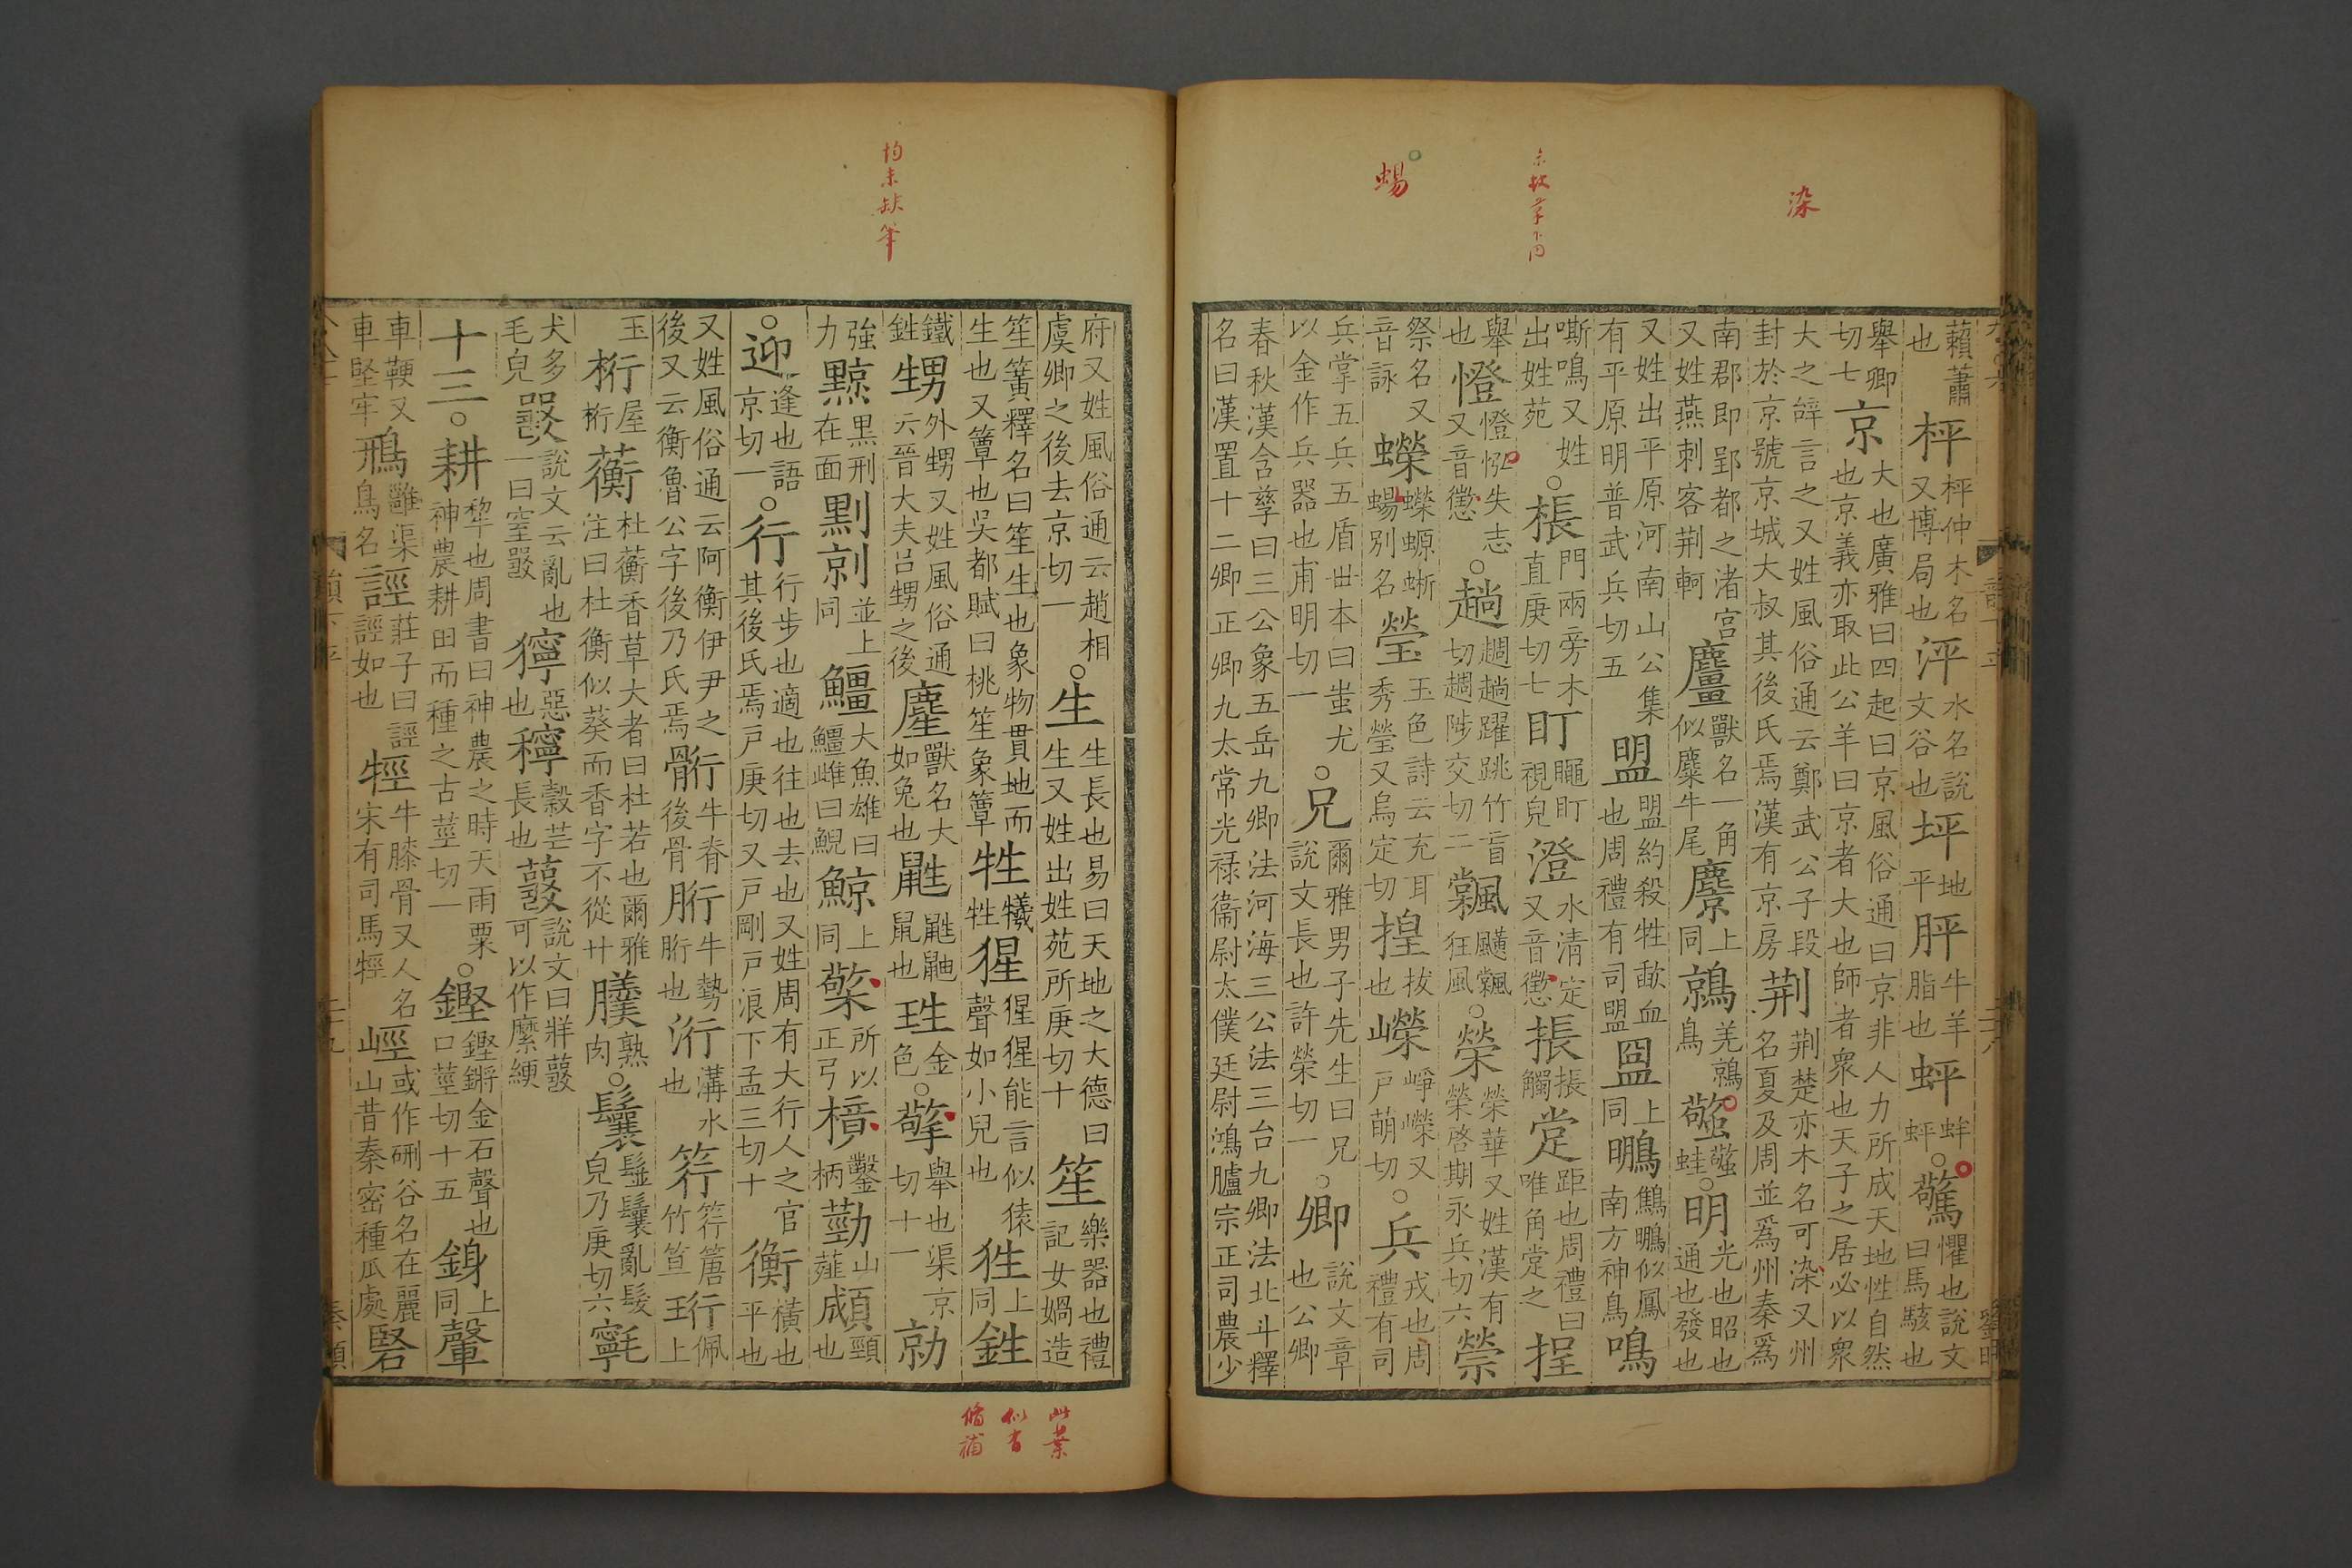 藾蕭也枰枰仲木名又博局也泙水名說文谷也坪地平胓牛羊脂也蚲蛘蚲○驚懼也說文曰馬駭也
舉卿切七京大也廣雅曰四起曰京風俗通曰京非人力所成天地性自然也京義亦取此公羊曰京者大也師者衆也天子之居必以衆
大之辝言之又姓風俗通云鄭武公子段封於京號京城大叔其後氏焉漢有京房荆荆楚亦木名可染又州名夏及周並爲州秦爲
南郡即郢都之渚宮又姓燕刺客荆軻麠獸名一角似麋牛尾麖上同鶁羌鶁鳥蟼蟼蛙○明光也昭也通也發也
又姓出平原河南山公集有平原明普武兵切五盟盟約殺牲歃血也周禮有司盟上同鷦似鳳南方神鳥鳴
嘶鳴又姓出姓苑○棖門兩旁木直庚切七盯盯視皃澄水清定又音懲振振觸距也周禮曰唯角之挰
舉也憕憕失志又音懲○趟趟躍跳竹盲切陟交切二䬖䬖狂風○榮榮華又姓漢有榮啓期永兵切六禜
祭名又音詠蠑蠑螈蜥蝪別名瑩玉色詩云充耳秀瑩又烏定切揘拔也嶸崢嶸又戶萌切○兵戎也周禮有司
兵掌五兵五盾丗本曰蚩尤以金作兵兵器也甫明切一○兄爾雅男子先生曰兄說文長也許榮切一○卿說文章也公卿
春秋漢含孳曰三公象五岳九卿法河海三公法三台九卿法北斗釋名曰漢置十二卿正卿九太常光禄衞尉太僕廷尉鴻臚宗正司農少
府又姓風俗通云趙相虞卿之後去京切一○生生長也易曰天地之大德曰生又姓出姓苑所庚切十笙樂器也禮記女媧造
笙簧釋名曰笙生也象物貫地而生也又簟也吳都賦曰桃笙象簟牲犧牲猩猩猩能言似猿聲如小兒也狌上同鉎
鐵鉎甥外甥又姓風俗通云晉大夫呂甥之後麈獸名大如兔也鼪鼪鼬鼠也珄金色○擎舉也渠京切十一勍
強力黥黑刑在面剠剠並上同鱷大魚雄曰鱷雌曰鯢鯨上同檠所以正弓樈鑿柄葝山薤頸也
○迎逢也語京切一○行行步也適也往也去也又姓周有大行人之官其後氏焉戶庚切又戶剛戶浪下孟三切十衡橫也平也
又姓風俗通云阿衡伊尹之後又云衡魯公字後乃氏焉䯒牛脊後骨胻牛勢胻也洐溝水也筕筕篖竹笪珩佩玉上
玉桁屋桁蘅杜蘅香草大者曰杜若也爾雅注曰杜衡似葵而香字不從艸膷熟肉○鬤鬡鬤亂髮皃乃庚切六㲌
犬多毛皃㗲說文云亂也一曰窒㗲獰惡也䆨榖芒長也說文曰牂可以作縻綆
十三○耕犂也周書曰神農之時天雨粟神農耕田而種之古莖切一○鏗鏗鏘金石聲也口莖切十五鋞上同鞏
車鞕又車堅牢鳽雝渠鳥名誙莊子曰誙誙如也牼牛膝骨又人名宋有司馬牼峌或作硎谷名在麗山昔秦密種瓜處硻
染
蝪
均未缺筆
此葉
似省
脩補